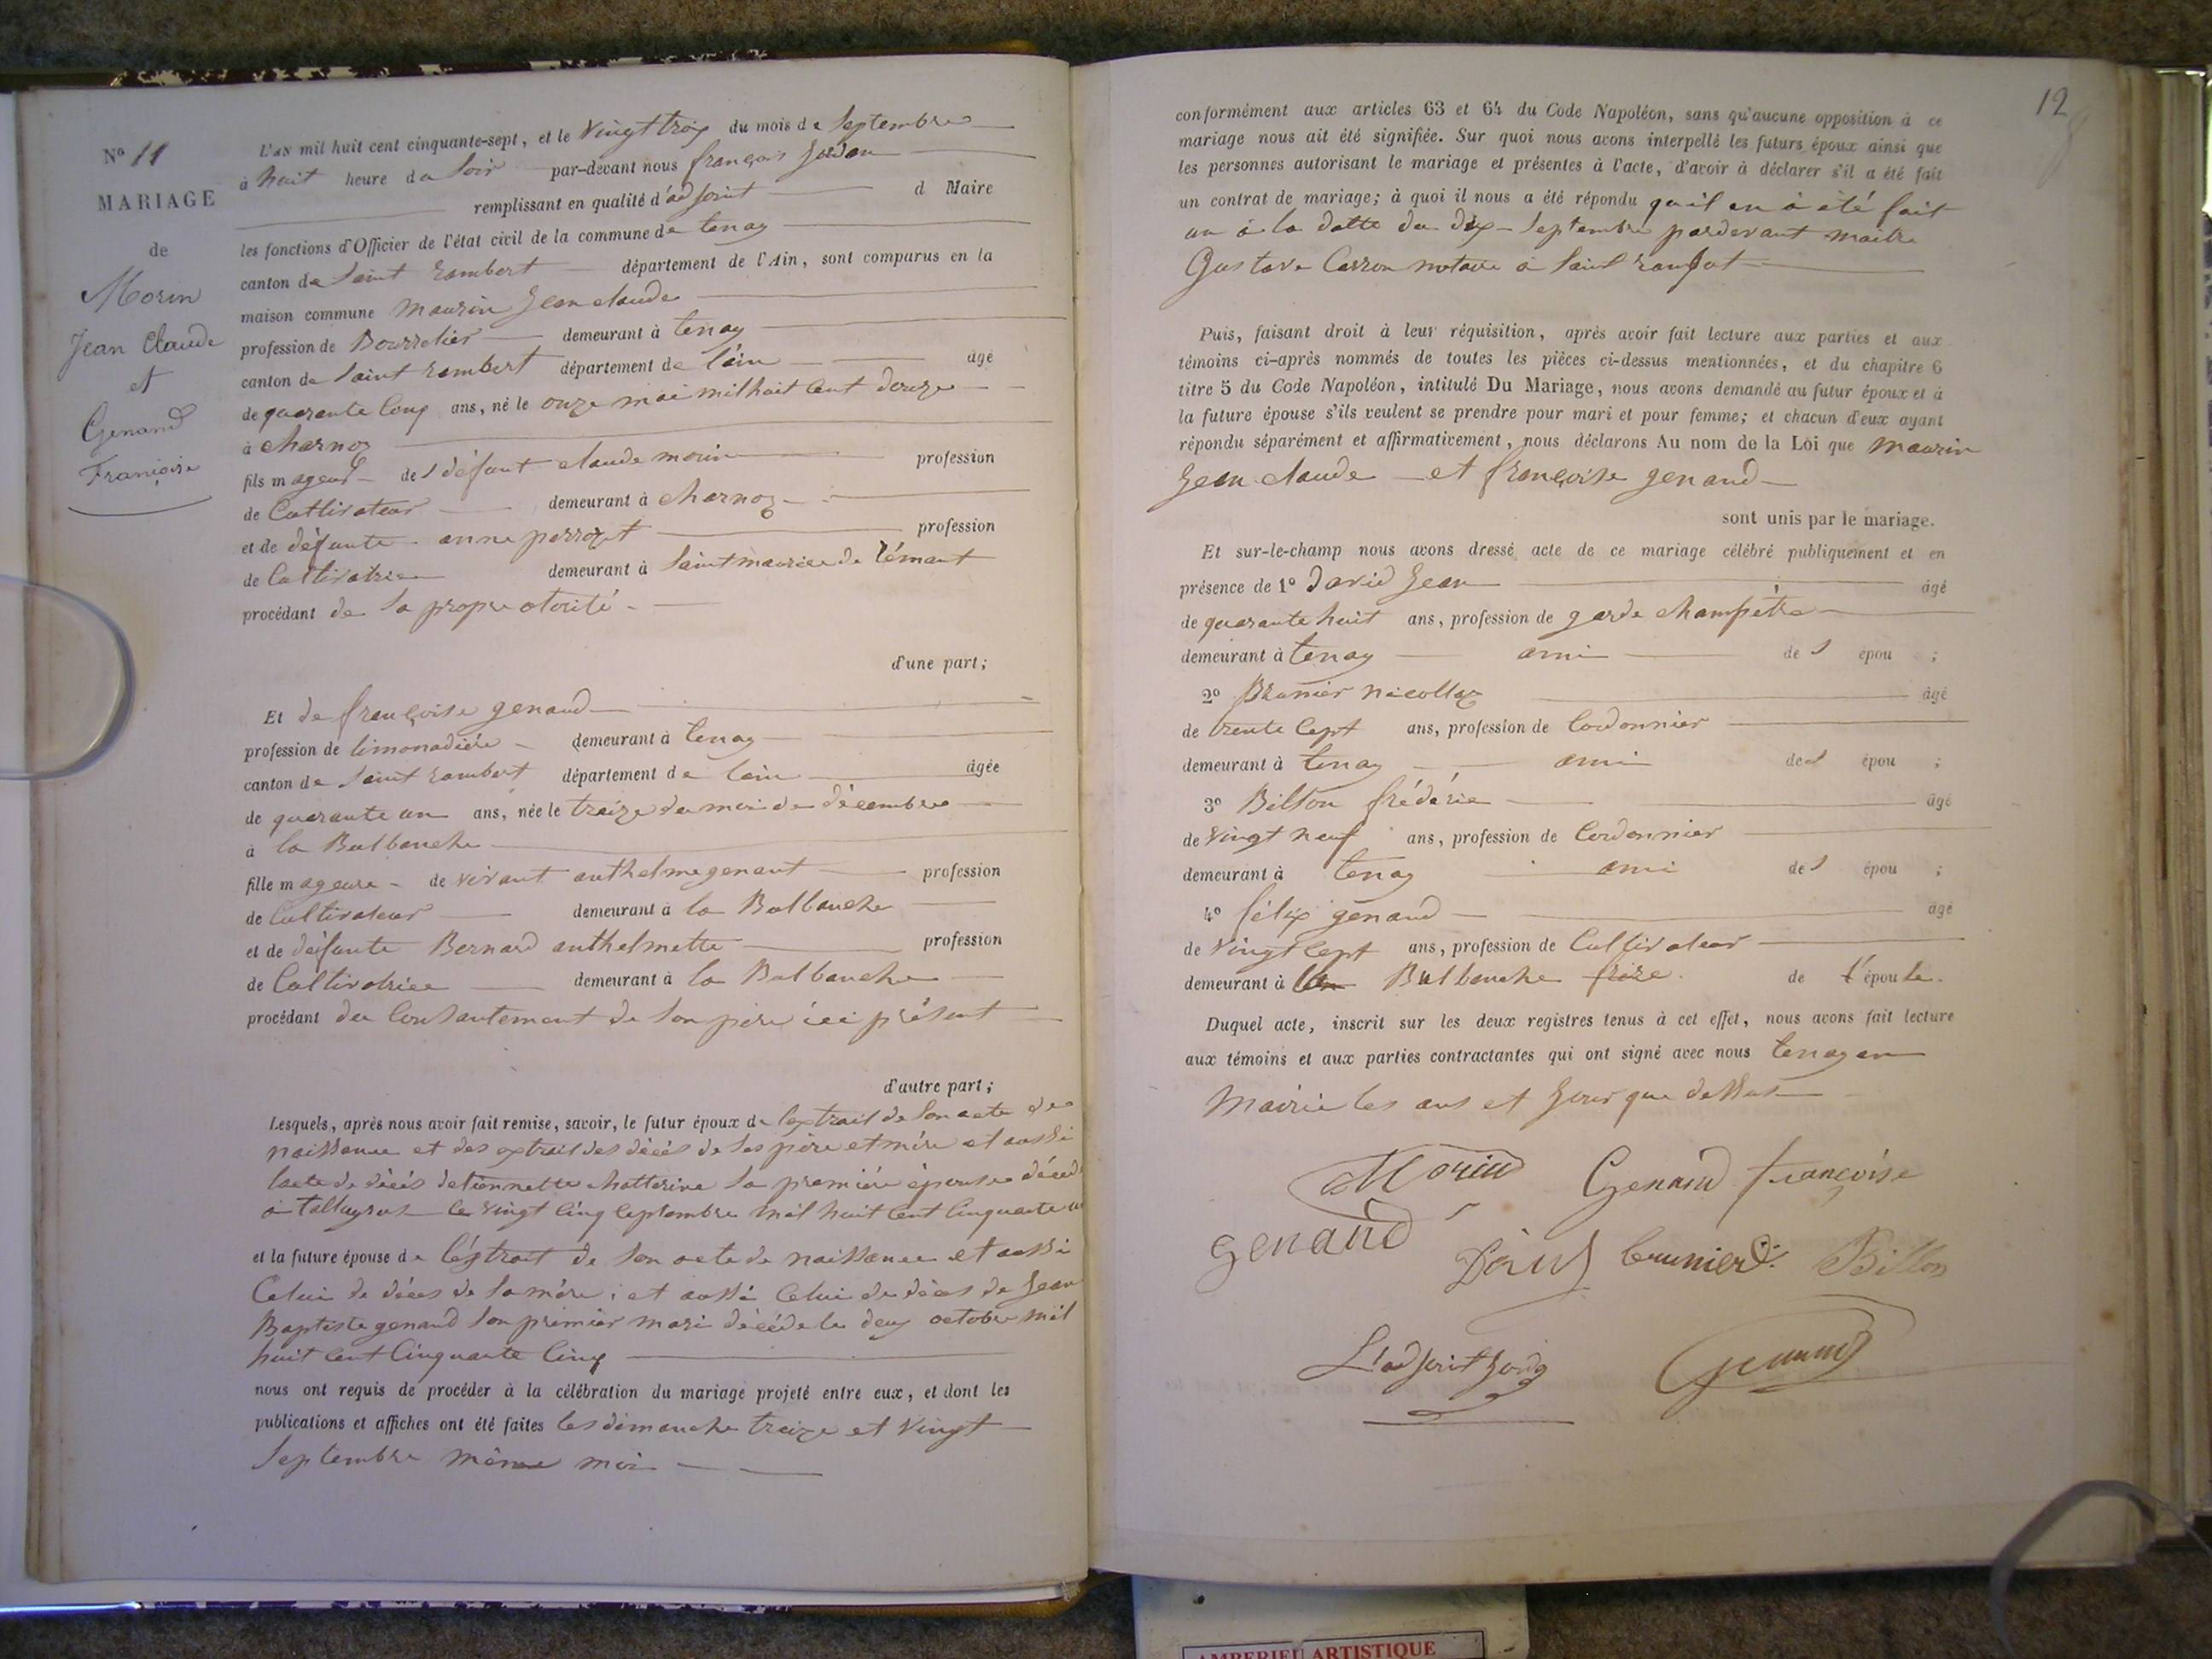 N° 11
MARIAGE
de
Morin
Jean Claude
et
Genand
Françoise
L'AN mil huit cent cinquante-sept, et le Vingt trois du mois de Septembre
à huit heure du Soir par-devant nous françois Jordan
remplissant en qualité d'adjoint d Maire
les fonctions d'Officier de l'état civil de la commune de tenay
canton de Saint rambert département de l'Ain, sont comparus en la
maison commune maurin Jean claude
profession de Bourrelier demeurant à tenay
canton de Saint rambert département de l'ain âgé
de quarante Cinq ans, né le onze mai mil huit Cent douze
à charnoz
fils mageur de défunt claude morin profession
de Cultivateur demeurant à charnoz
et de défunte anne perrozet profession
de Cultivatrice demeurant à Saint maurice de rémant
procédant de Sa propre otorité
d'une part;
Et de françoise genand
profession de limonadière demeurant à tenay
canton de Saint rambert département de l'ain âgée
de quarante un ans, née le treize du moi de décembre
à la Balbanche
fille mageure de vivant anthelme genant profession
de Cultivateur demeurant à la Balbanche
et de défunte Bernard anthelmette profession
de Cultivatrice demeurant à la Balbanche
procédant du Consantement de Son père ici présent
d'autre part;
Lesquels, après nous avoir fait remise, savoir, le futur époux de l'extrait de Son acte de
naissance et des extrait des décès de Ses père et mère et aussi
l'acte de décès détiennette chatterine Sa première épouse décéd
à le vingt Cinq Septembre mil huit Cent Cinquante
et la future épouse de l'extrait de Son acte de naissance et aussi
Celui de décès de Sa mère; et aussi Celui de décès de Jean
Baptiste genand Son premier mari décédé le deux octobre mil
huit Cent Cinquante Cinq
nous ont requis de procéder à la célébration du mariage projeté entre eux, et dont les
publications et affiches ont été faites les dimanche treize et Vingt
Septembre même moi
12
conformément aux articles 63 et 64 du Code Napoléon, sans qu'aucune opposition à ce
mariage nous ait été signifiée. Sur quoi nous avons interpellé les futurs époux ainsi que
les personnes autorisant le mariage et présentes à l'acte, d'avoir à déclarer s'il a été fait
un contrat de mariage; à quoi il nous a été répondu qu'il en à été fait
un à la datte du dix Septembre pardevant maître
Gustave Carron notaire à Saint
Puis, faisant droit à leur réquisition, après avoir fait lecture aux parties et aux
témoins ci-après nommés de toutes les pièces ci-dessus mentionnées, et du chapitre 6
titre 5 du Code Napoléon, intitulé Du Mariage, nous avons demandé au futur époux et à
la future épouse s'ils veulent se prendre pour mari et pour femme; et chacun d'eux ayant
répondu séparément et affirmativement, nous déclarons Au nom de la Loi que maurin
Jean claude et françoise genand
sont unis par le mariage.
Et sur-le-champ nous avons dressé acte de ce mariage célébré publiquement et en
présence de 1° David Jean âgé
de quarante huit ans, profession de garde champêtre
demeurant à tenay ami des épou ;
2° Brunier nicollas âgé
de trente Sept ans, profession de Cordonnier
demeurant à tenay ami des épou ;
3° Billon frédéric âgé
de vingt neuf ans, profession de Cordonnier
demeurant à tenay ami des épou ;
4° félix genand âgé
de vingt Sept ans, profession de Cultivateur
demeurant à Balbanche frère de l'épouse.
Duquel acte, inscrit sur les deux registres tenus à cet effet, nous avons fait lecture
aux témoins et aux parties contractantes qui ont signé avec nous tenay en
Mairie les ans et Jour que dessus
Morin Genand françoise
genand brunier Billon
L'adjoint Genand
AMBERIEU ARTISTIQUE